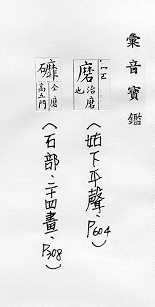 彙音寶鑑
磨 治磨也
〈姑下平聲、P604〉
仝磨 高五門
〈石部、二十四畫、P308〉